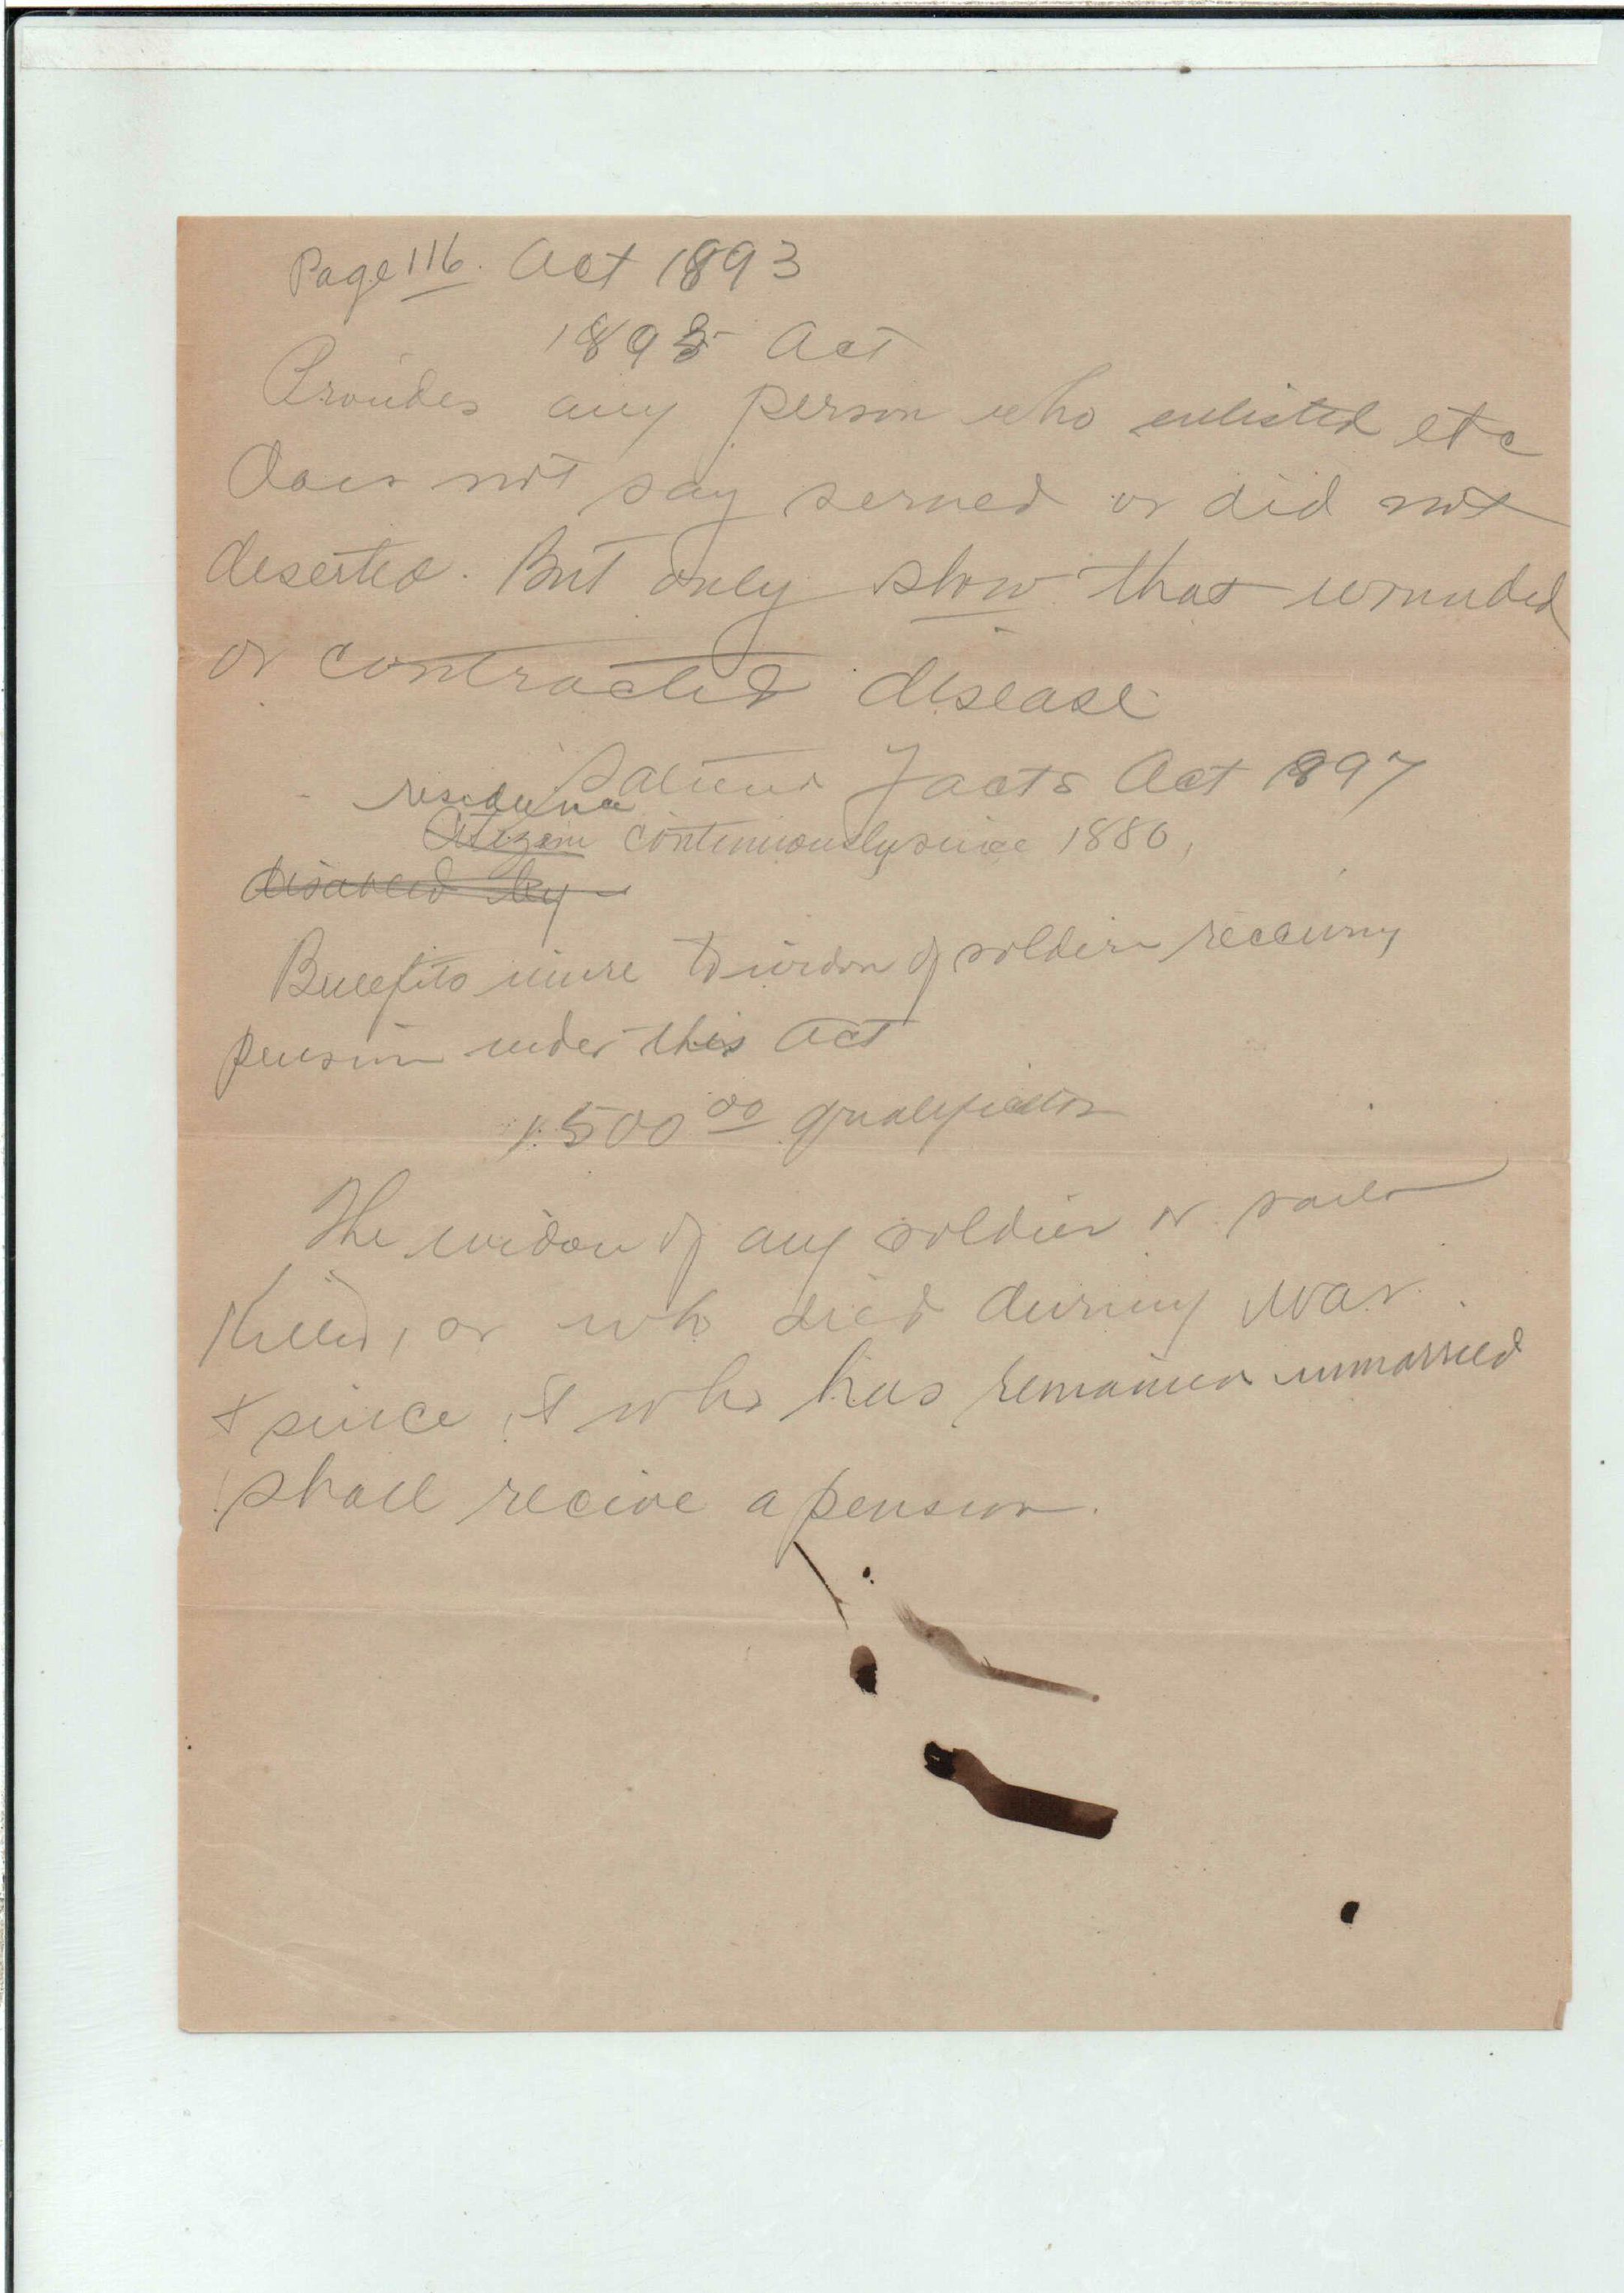 Page 116. Act 1893
1893 Act
Provides any person who enlisted etc
does not say served or did not
deserted. But only show that wounded
or contracted disease
Salient Facts Act 1897
residence
Citizen continuously since 1880,
disabled by
Benefits inure to widow of soldier receiving
pension under this act
1500 00 qualification
The widow of any soldier or sailor
Killed, or who died during War
& since, & who has remained unmarried
shall recive a pension.